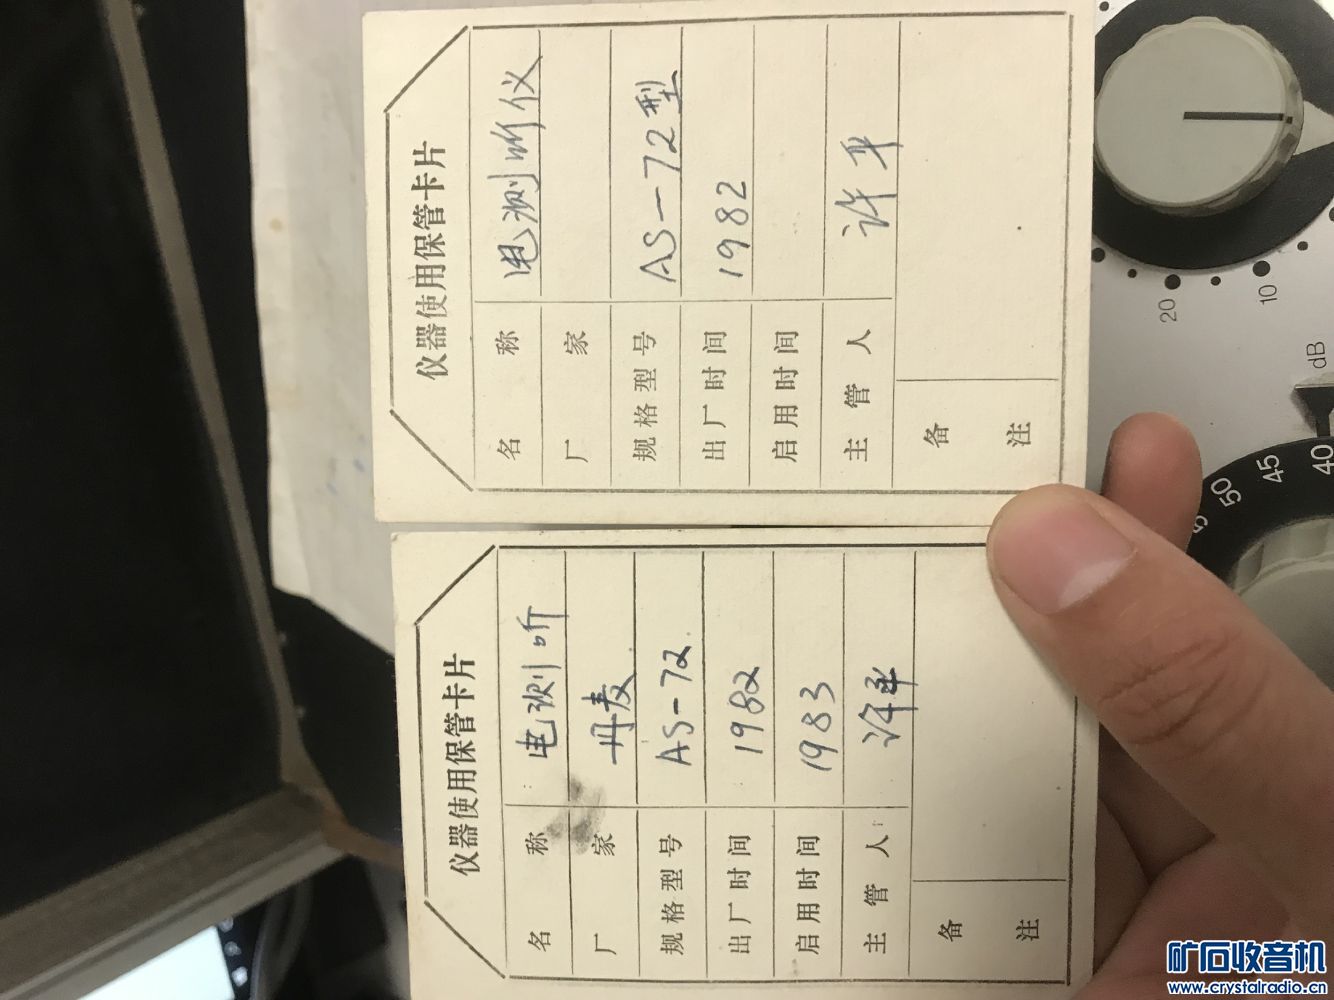 仪器使用保管卡片
名称 电测听仪
厂家
规格型号 AS-72型
出厂时间 1982
启用时间
主管人 许平
备注
仪器使用保管卡片
名称 电测听
厂家 丹麦
规格型号 AS-72
出厂时间 1982
启用时间 1983
主管人 许平
备注
20
10
dB
50
45
40
矿石收音机
www.crystalradio.cn